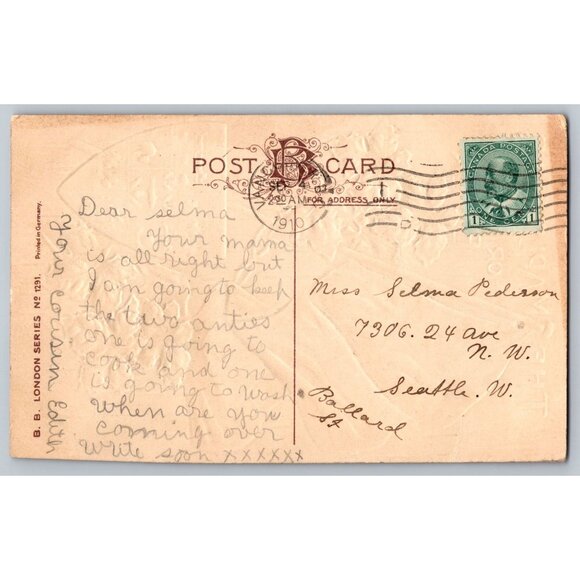 POST CARD
BB
VANCOUVER
SEP 4
230 AM
1910
FOR ADDRESS ONLY
1
CANADA POSTAGE
1 1
Dear Selma
Your mama
is all right but
I am going to keep
the two anties
one is going to
cook and one
is going to wash
When are you
coming over
write soon xxxxxx
Your Cousin Edith
Miss Selma Pederson
7306. 24 Ave
N. W.
Seattle. W.
Ballard
St
B. B. LONDON SERIES No 1291. Printed in Germany.